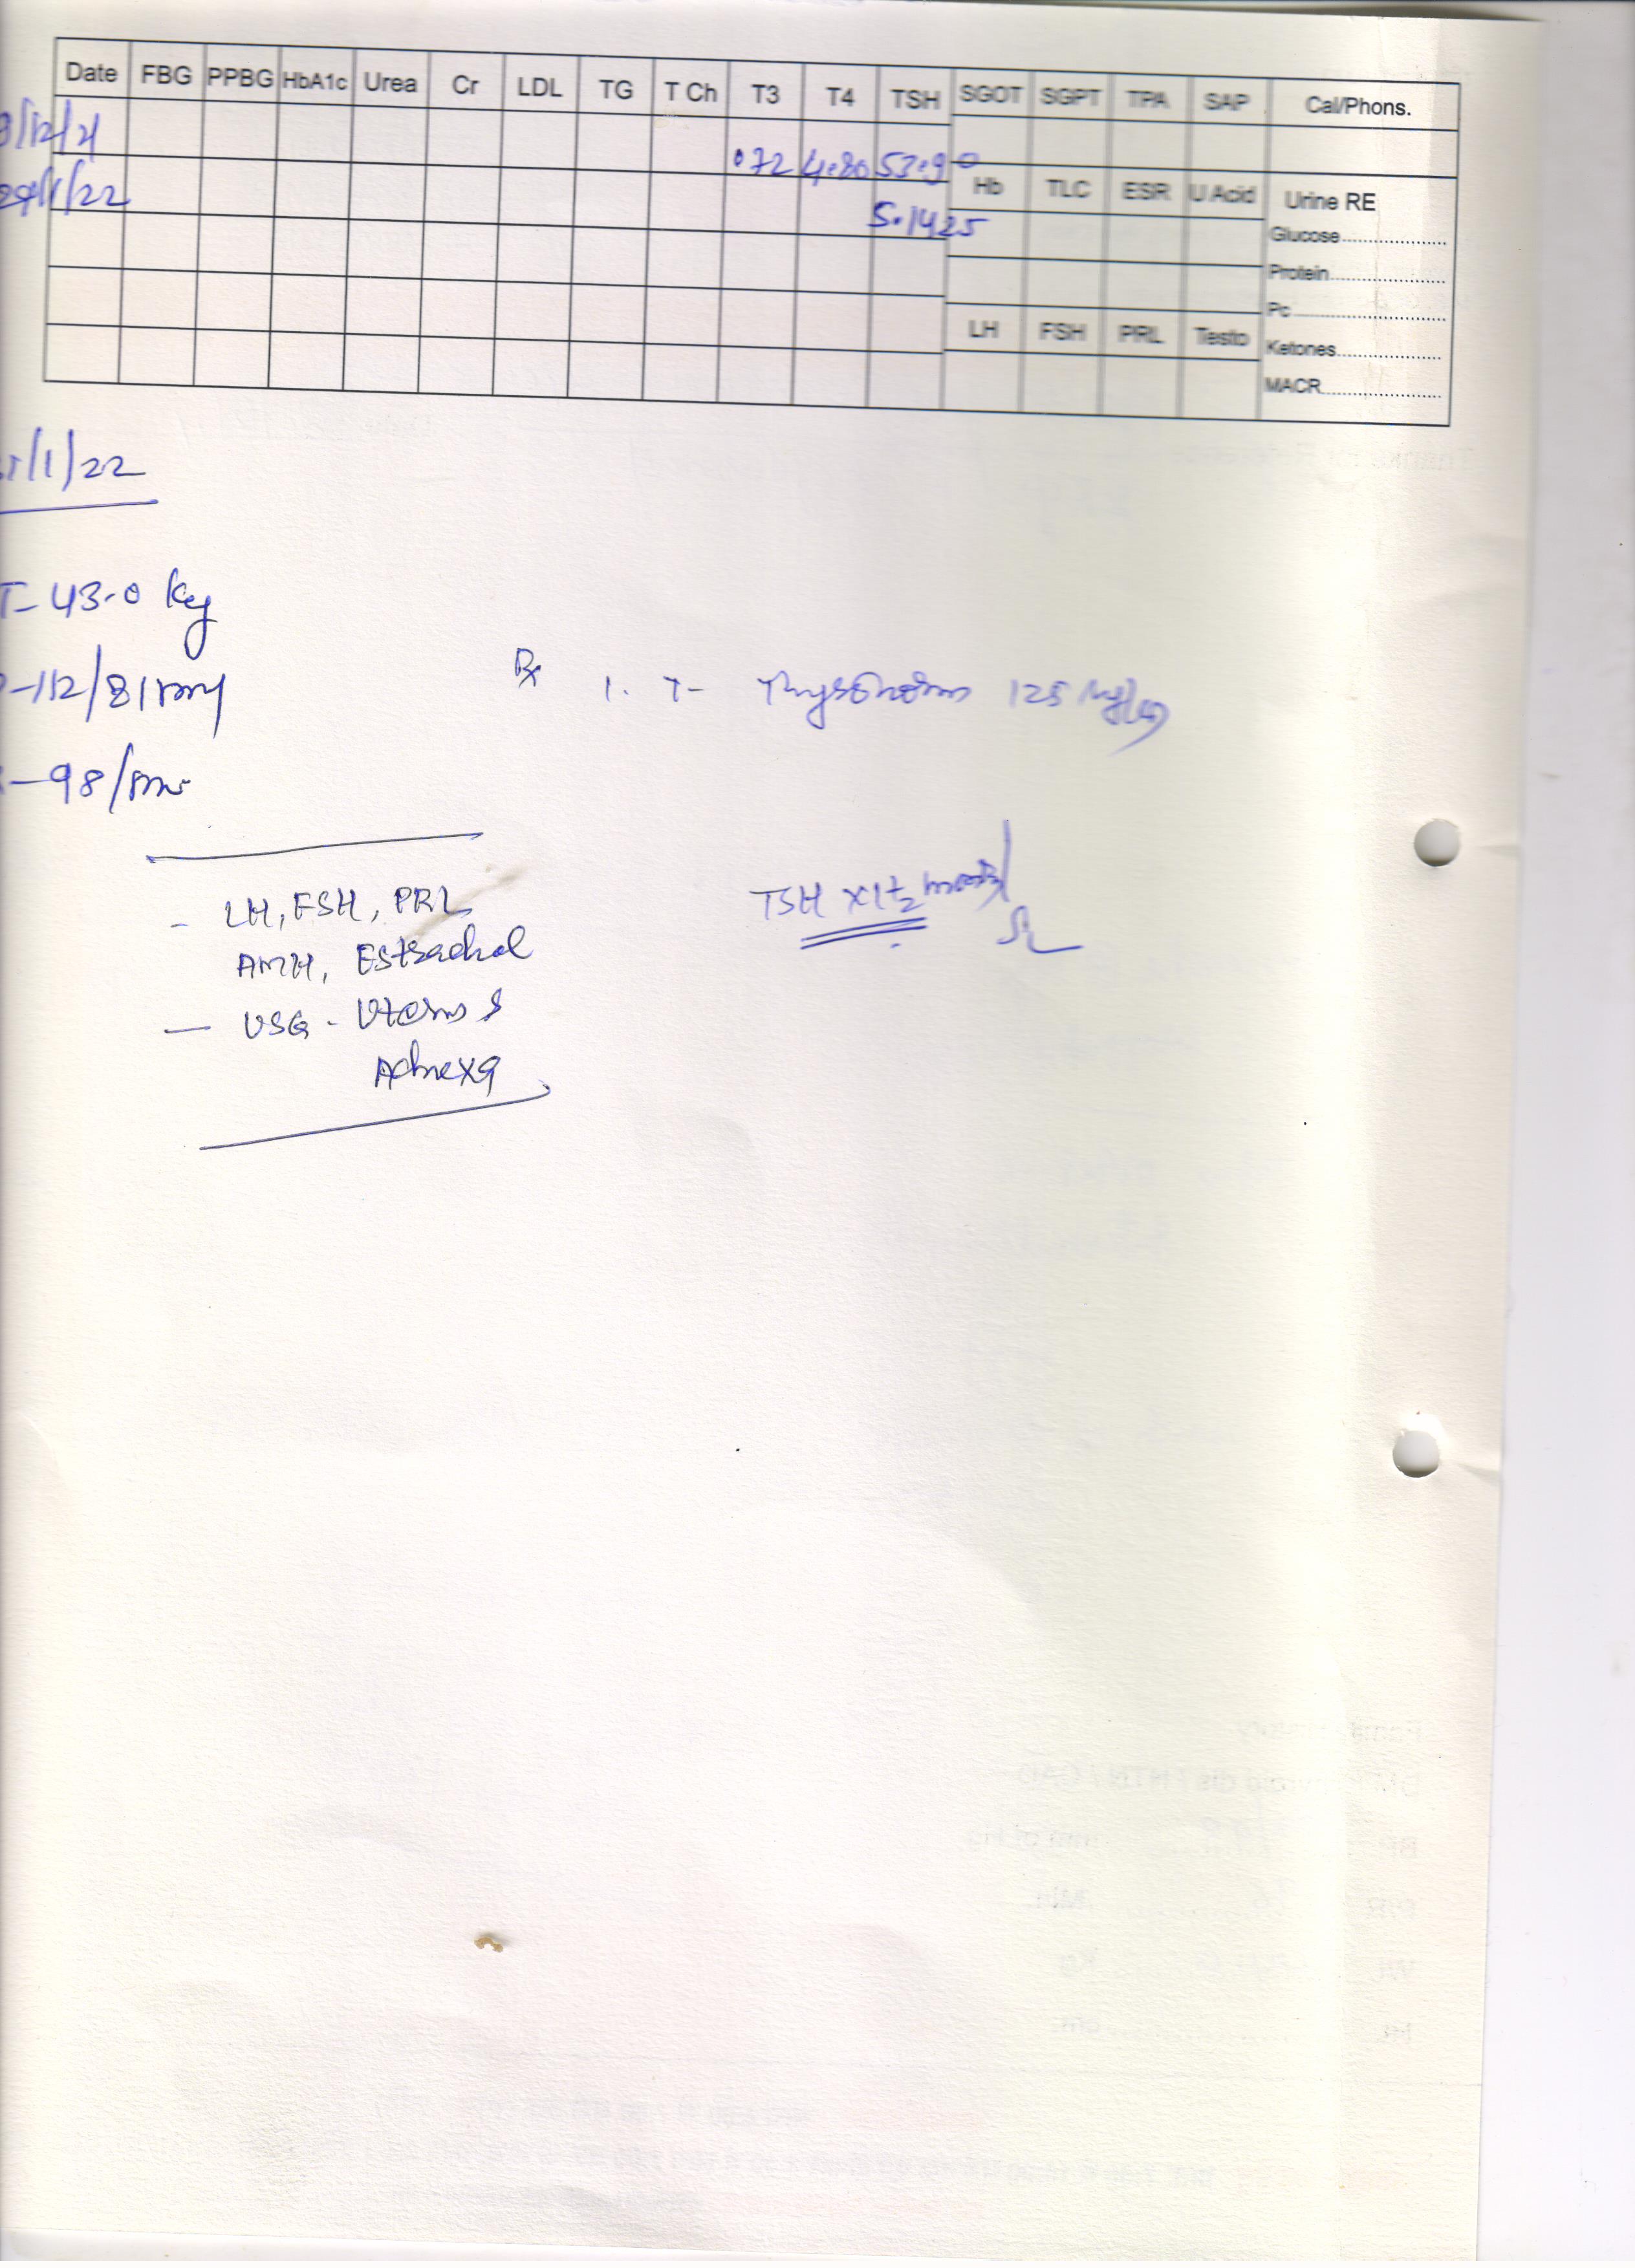 Date FBG PPBG HbA1c Urea Cr LDL TG T Ch T3 T4 TSH SGOT SGPT TPA SAP Cal/Phons.
/12/21 .072 4.80 53.90
/1/22 5.1425
Hb TLC ESR U Acid Urine RE
Glucose
Protein
Pc
LH FSH PRL Testo Ketones
MACR
/1/22
T- 43.0 kg
-112/81
-98/
Rx 1. T- Thyronorm 125
- LH, FSH, PRL
AMH, Estradiol
TSH x 1 1/2 month
- USG - Uterus &
Adnexa